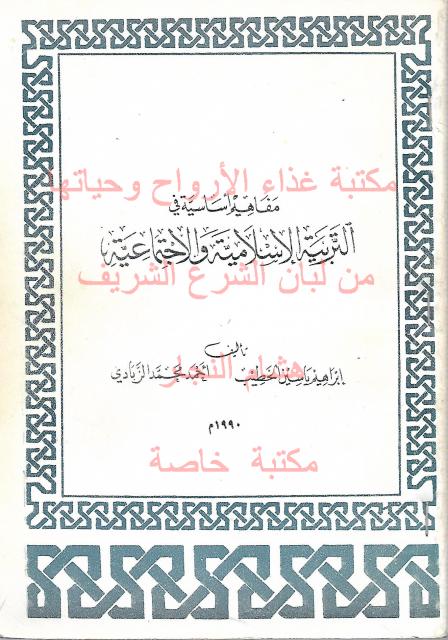 مكتبة غذاء الأرواح وحياتها
مفاهيم أساسية في
التربية الإسلامية والاجتماعية
من لبان الشرع الشريف
تأليف
هشام النجار
إبراهيم ياسين الخطيب أحمد محمد الزبادي
١٩٩٠م
مكتبة خاصة